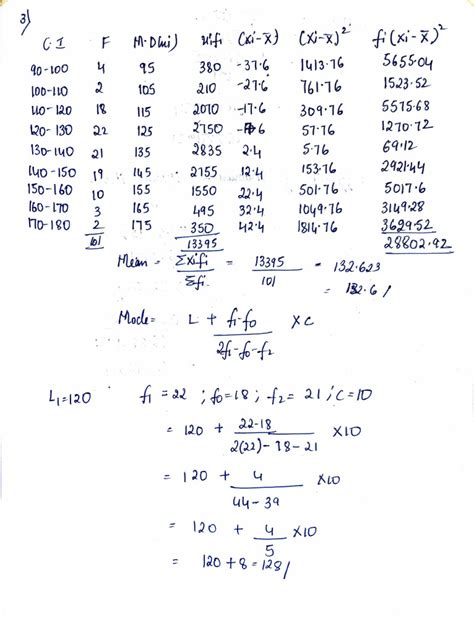 3)
C.I F M.D(xi) xifi (xi-x̄) (xi-x̄)² fi(xi-x̄)²
90-100 4 95 380 -37.6 1413.76 5655.04
100-110 2 105 210 -27.6 761.76 1523.52
110-120 18 115 2070 -17.6 309.76 5575.68
120-130 22 125 2750 -7.6 57.76 1270.72
130-140 21 135 2835 2.4 5.76 69.12
140-150 19 145 2755 12.4 153.76 2921.44
150-160 10 155 1550 22.4 501.76 5017.6
160-170 3 165 495 32.4 1049.76 3149.28
170-180 2 175 350 42.4 1814.76 3629.52
101 13395 28802.92
Mean = Σxifi / Σfi = 13395 / 101 = 132.623
= 132.6/
Mode = L + f1-f0 / 2f1-f0-f2 XC
L1=120 f1=22 ; f0=18 ; f2= 21 ; C=10
= 120 + 22-18 / 2(22)-18-21 X10
= 120 + 4 / 44-39 X10
= 120 + 4 / 5 X10
= 120+8=128/